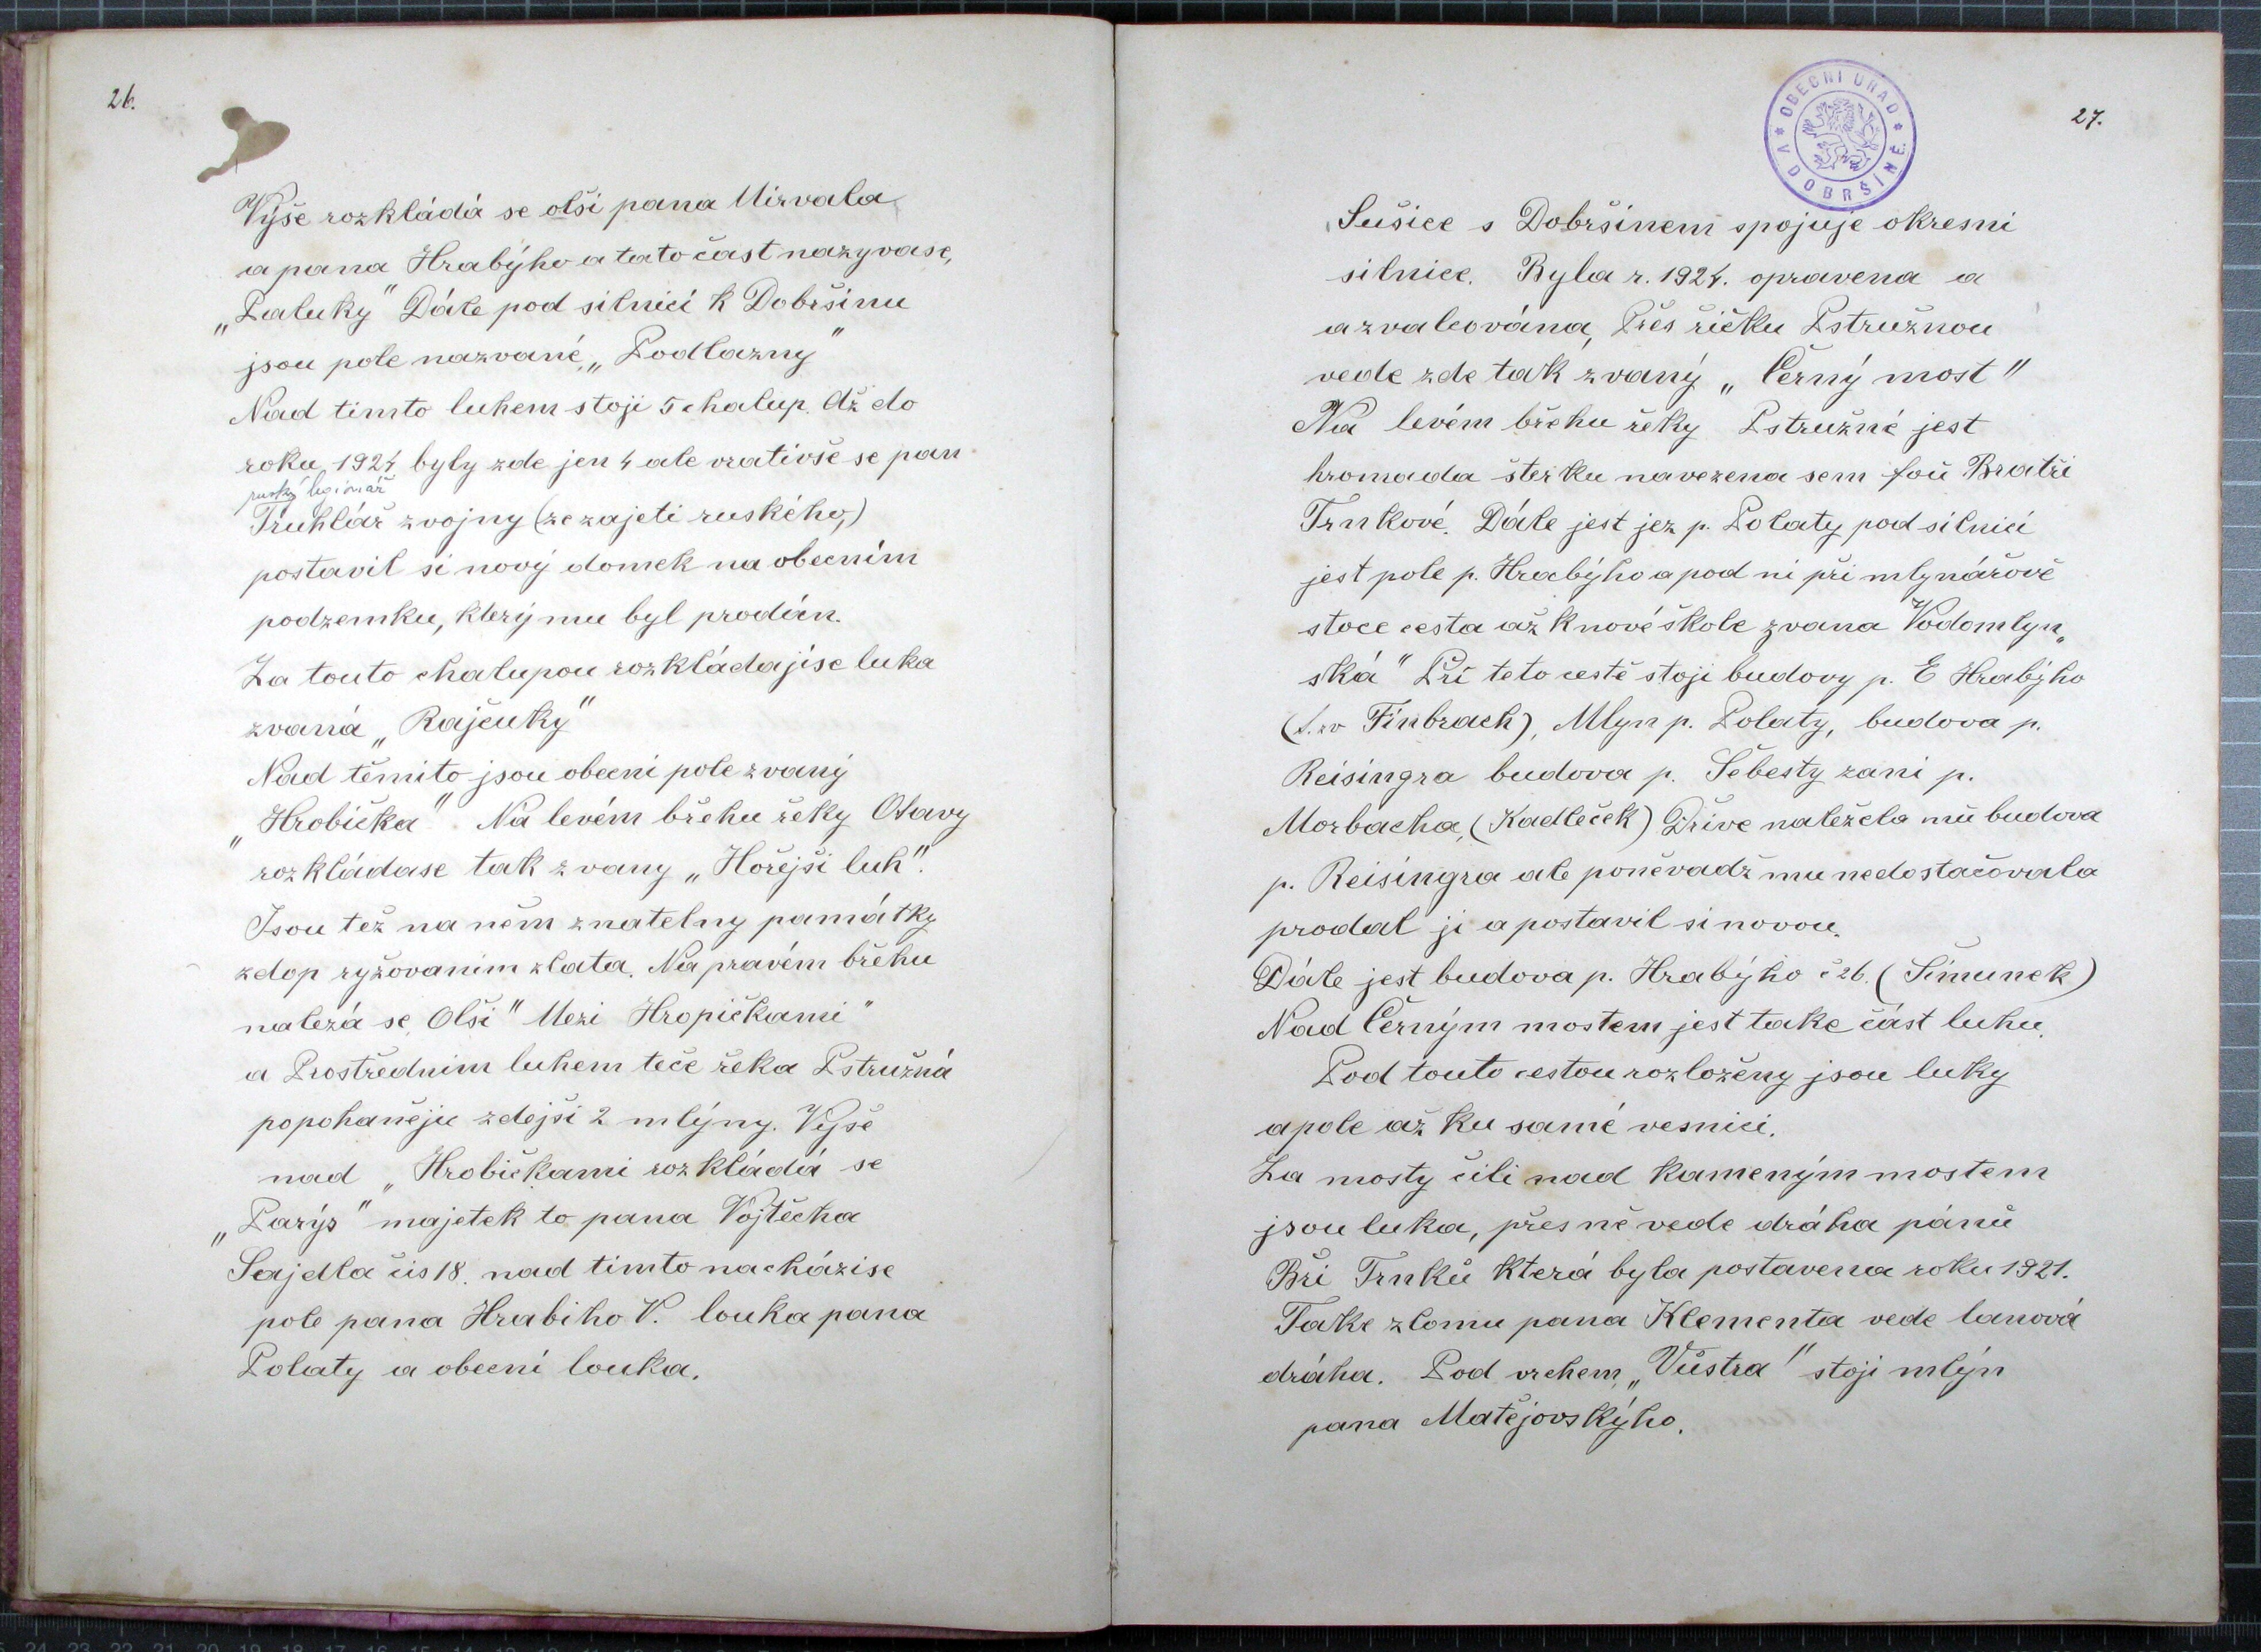 26.
Výše rozkládá se olší pana Mirvala
a pana Hrabýho a tato část nazyvase,
„Paluky" Dále pod silnicí k Dobršínu
jsou pole nazvané „Podlazny"
Nad timto luhem stoji 5 chalup. Až do
roku 1924 byly zde jen 4 ale vrativše se pan
ruský legionář
Truhlář z vojny (ze zajeti ruského,)
postavil si nový domek na obecním
podzemku, který mu byl prodán.
Za touto chalupou rozkládajíse luka
zvaná „Rajčuky"
Nad těmito jsou obecní pole zvaný
„Hrobička". Na levém břehu řeky Otavy
rozkládase tak zvany „Hořejši luh".
Jsou též na něm znatelny památky
zdop ryžovaním zlata. Na pravém břehu
nalezá se Olší" Mezi Hropičkami"
a Prostředním luhem teče řeka Pstružná
popohanějíc zdejší 2 mlýny. Výše
nad „Hrobičkami rozkládá se
„Parýs" majetek to pana Vojtěcha
Sajdla čis 18. nad timto nacházise
pole pana Hrabiho V. louka pana
Polaty a obecní louka.
27.
* OBECNÍ ÚŘAD * V DOBRŠÍNĚ.
Sušice s Dobršínem spojuje okresni
silnice. Byla r. 1924. opravena a
a zvalcována, Přes říčku Pstružnou
vede zde tak zvaný „Černý most"
Na levém břehu řeky Pstružné jest
hromada šterku navezena sem fou Bratři
Trnkové. Dále jest jez p. Polaty pod silnicí
jest pole p. Hrabýho a pod ni při mlynářově
stoce cesta až k nové škole zvana Vodomlyn„
ská" Při teto cestě stoji budovy p. E Hrabýho
(t.zv Finbrach), Mlyn p. Polaty, budova p.
Reisingra budova p. Šebesty zani p.
Morbacha, (Kadleček) Dřive naležela mů budova
p. Reisingra ale poněvadž mu nedostačovala
prodal ji a postavil si novou.
Dále jest budova p. Hrabýho č 26. (Šimunek)
Nad Černým mostem jest take část luhu.
Pod touto cestou rozloženy jsou luky
a pole až ku samé vesnici.
Za mosty čili nad kameným mostem
jsou luka, přes ně vede dráha pánů
Bři Trnků která byla postavena roku 1921.
Take z lomu pana Klementa vede lanová
dráha. Pod vrchem „Vůstra" stoji mlýn
pana Matějovskýho.